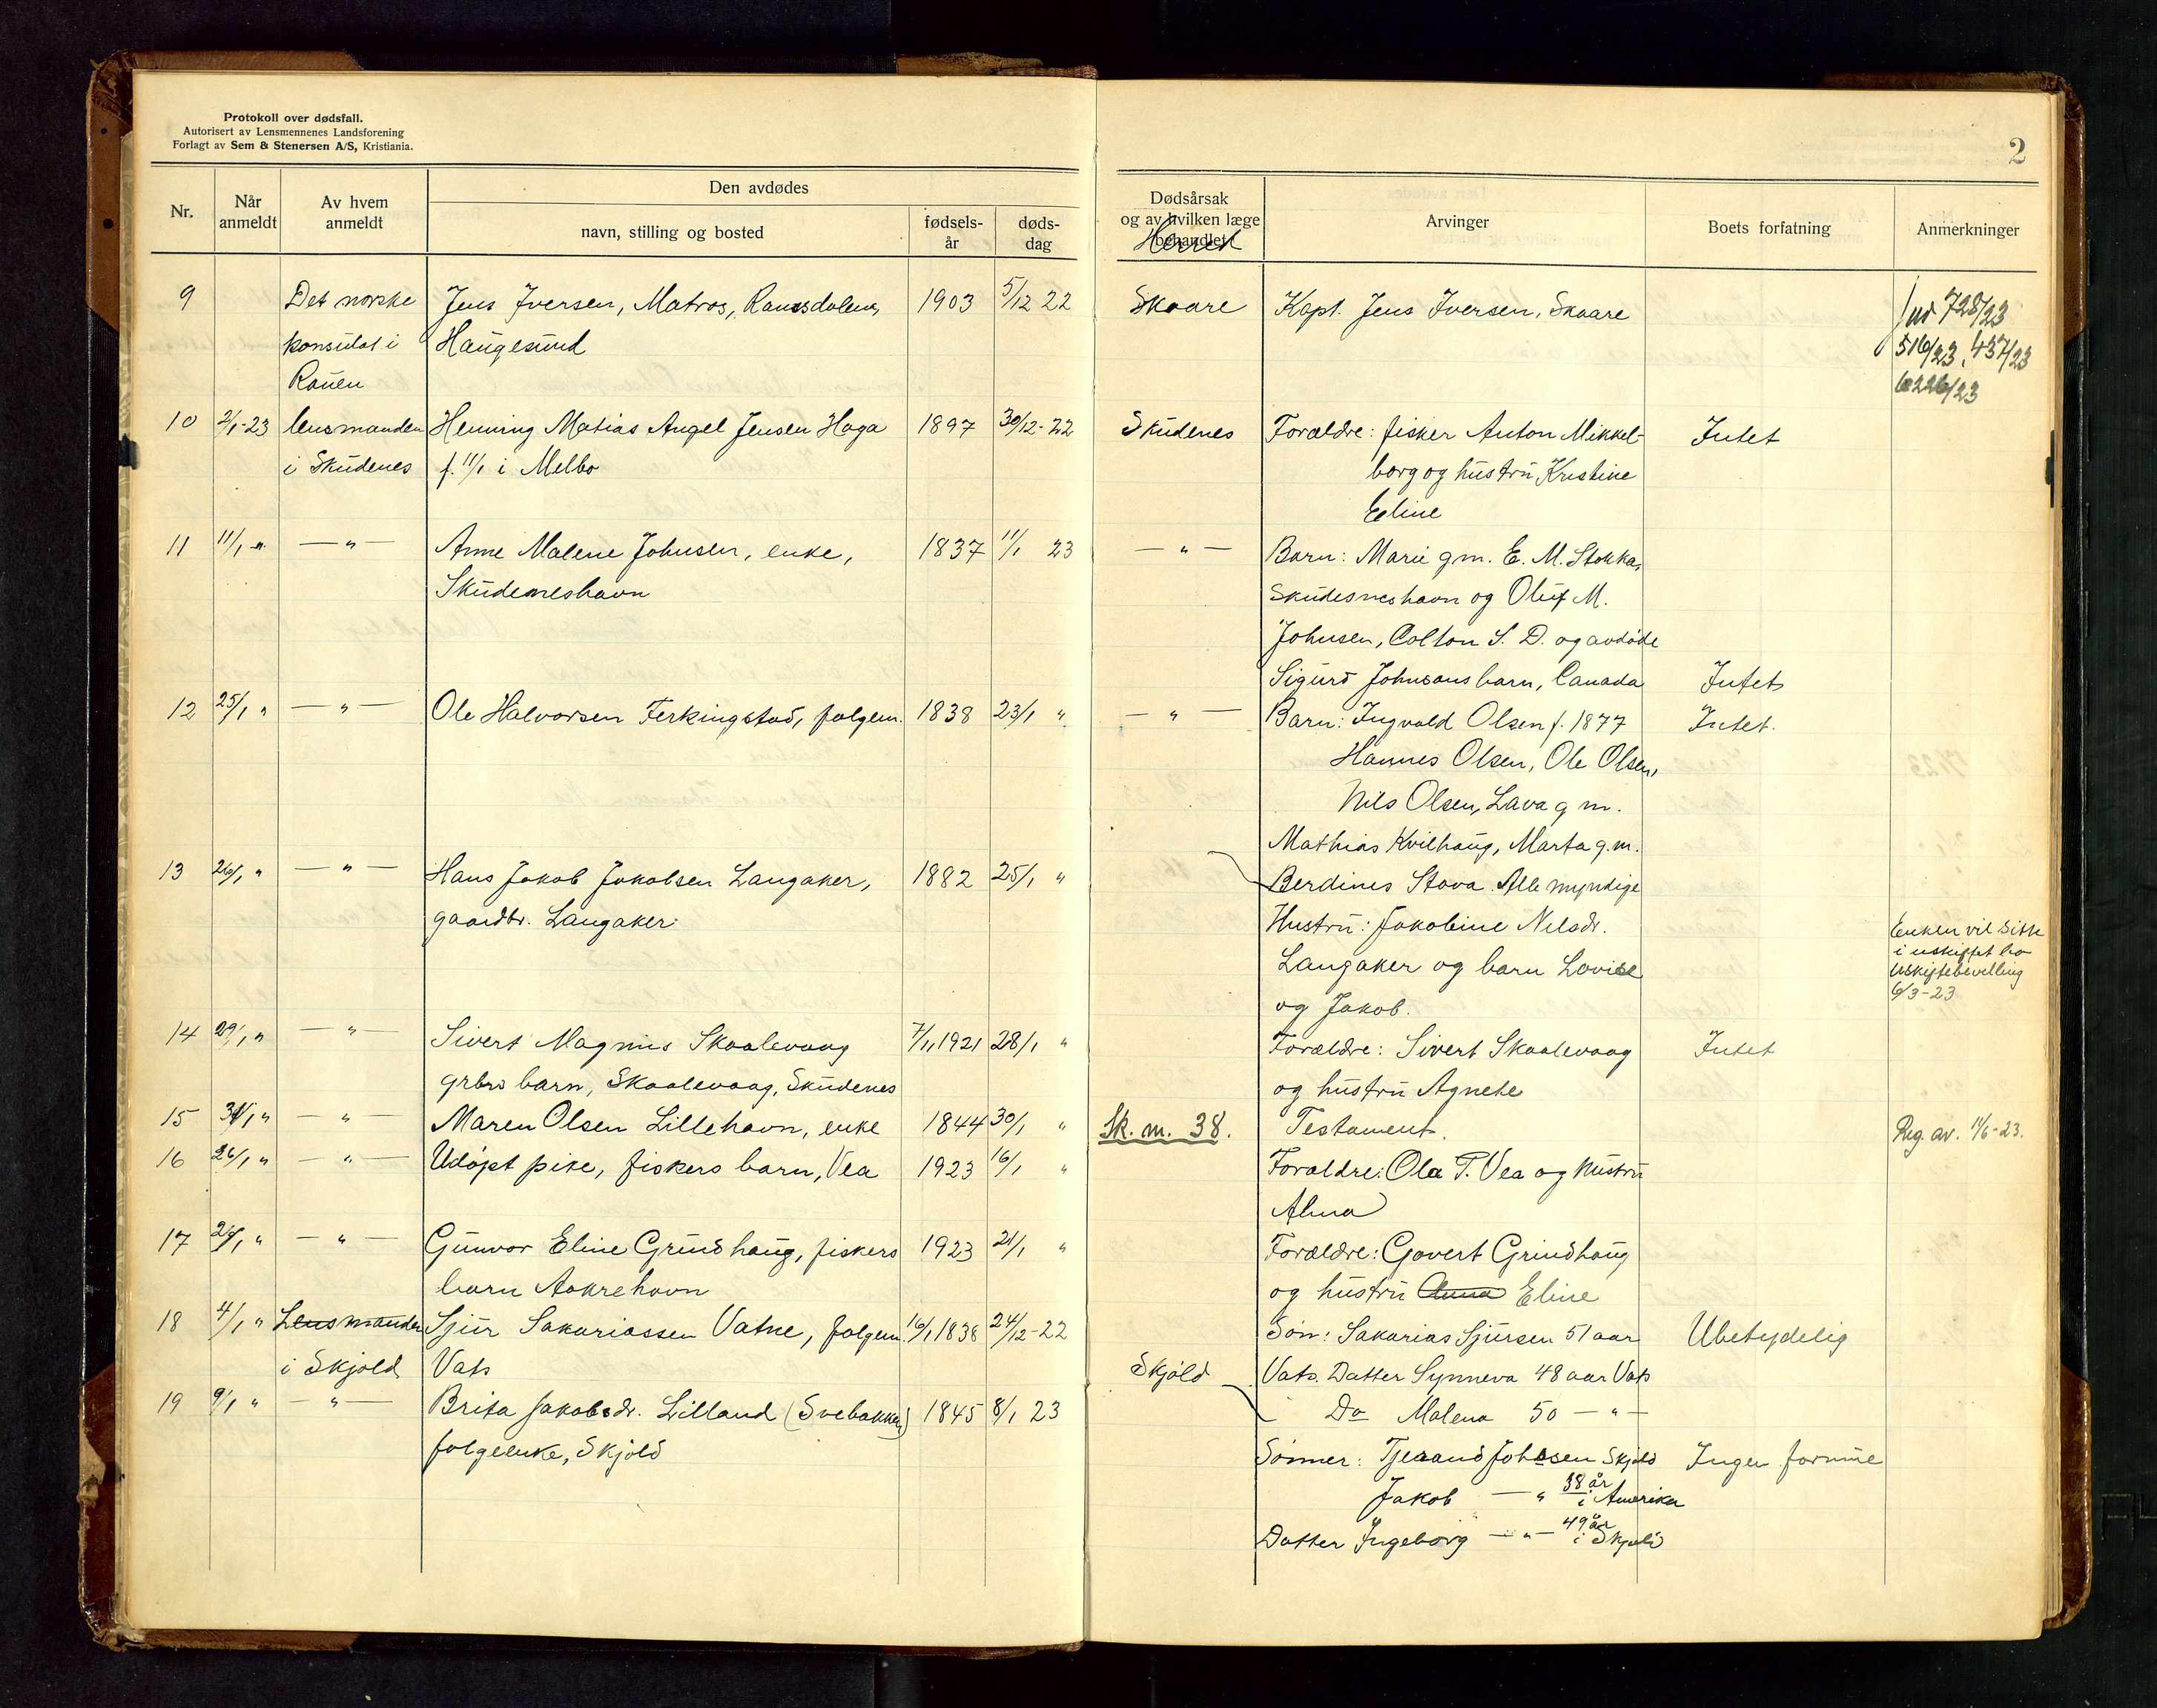 Protokoll over dødsfall.
Autorisert av Lensmennenes Landsforening
Forlagt av Sem & Stenersen A/S, Kristiania.
2
Nr.
Når anmeldt
Av hvem anmeldt
Den avdødes
navn, stilling og bosted
fødsels-år
døds-dag
Dødsårsak
og av hvilken læge
behandlet
Herred
Arvinger
Boets forfatning
Anmerkninger
9 Det norske Jens Iversen, Matros, 1903 5/12 22 Skaare Kapt. Jens Iversen, Skaare Jnr 728/23
konsulat i Haugesund 516/23. 437/23
Rouen
10 2/1-23 lensmanden Henning Matias Angel Jensen Haga 1897 30/12-22 Skudenes Forældre: fisker Anton Mikkel- Intet
i Skudenes f. 11/1 i Melbo borg og hustru Kristine
Eline
11 11/1 " — " — Anne Malene Johnsen, enke, 1837 11/1 23 — " — Barn: Marie g.m. E. M. Stokka,
Skudesneshavn Skudesneshavn og Oluf M.
Johnsen, Colton S. D. og avdøde
Sigurd Johnsons barn, Canada Intet
12 25/1 " — " — Ole Halvorsen Ferkingstad, folgem. 1838 23/1 " — " — Barn: Ingvald Olsen f. 1877 Intet.
Hannes Olsen, Ole Olsen,
Nils Olsen, Lava g m.
Mathias Kvilhaug, Marta g.m.
13 26/1 " — " — Hans Jakob Jakobsen Langaker, 1882 25/1 " Berdines Stava. Alle myndige
gaardbr. Langaker. Hustru: Jakobine Nilsdr. Enken vil sitte
Langaker og barn Lovise i uskiftet bo
og Jakob. Uskiftebevilling
6/3-23
14 29/1 " — " — Sivert Magnus Skaalevaag 7/11 1921 28/1 " Forældre: Sivert Skaalevaag Intet
grbrs barn, Skaalevaag, Skudenes og hustru Agnete
15 31/1 " — " — Maren Olsen Lillehavn, enke 1844 30/1 " Sk. m. 38. Testament. Reg. av. 11/6-23.
16 26/1 " — " — Udøpt pike, fiskers barn, Vea 1923 16/1 " Forældre: Ola T. Vea og hustru
Alma
17 24/1 " — " — Gunvor Eline Grindhaug, fiskers 1923 21/1 " Forældre: Govert Grindhaug
barn Aakrehavn og hustru Anna Eline
18 4/1 " Lensmanden Sjur Sakariassen Vatne, folgem. 16/1 1838 24/12-22 Søn: Sakarias Sjursen 51 aar Ubetydelig
i Skjold Vats Skjold Vats. Datter Synneva 48 aar Vats
Do Malena 50 — " —
19 9/1 " — " — Brita Jakobsdr. Lilland (Svebakken) 1845 8/1 23
folgeenke, Skjold Sønner: Tjerand Johnsen Skjold Ingen formue
Jakob — " 38 år i Amerika
Datter Ingeborg — " — 49 år i Skjold